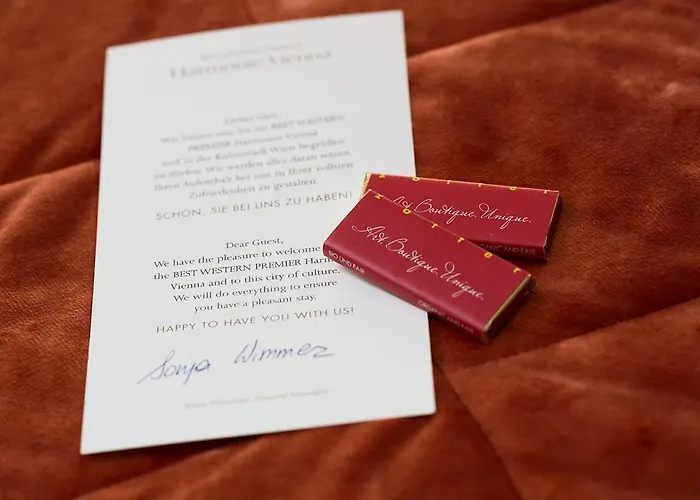 Harmonie Vienna
Lieber Gast,
Wir freuen uns, Sie im BEST WESTERN
PREMIER Harmonie Vienna
und in der Kulturstadt Wien begrüßen
zu dürfen. Wir werden alles daran setzen,
Ihren Aufenthalt bei uns zu Ihrer vollsten
Zufriedenheit zu gestalten
SCHÖN, SIE BEI UNS ZU HABEN!
Dear Guest,
We have the pleasure to welcome
the BEST WESTERN PREMIER Harm
Vienna and to this city of culture.
We will do everything to ensure
you have a pleasant stay.
HAPPY TO HAVE YOU WITH US!
Sonja Wimmer
Sonja Wimmer, General Manager
Art. Boutique. Unique.
ORGANIC AND FAIR
zotter
Art. Boutique. Unique.
BIO UND FAIR
ORGANIC AND FAIR